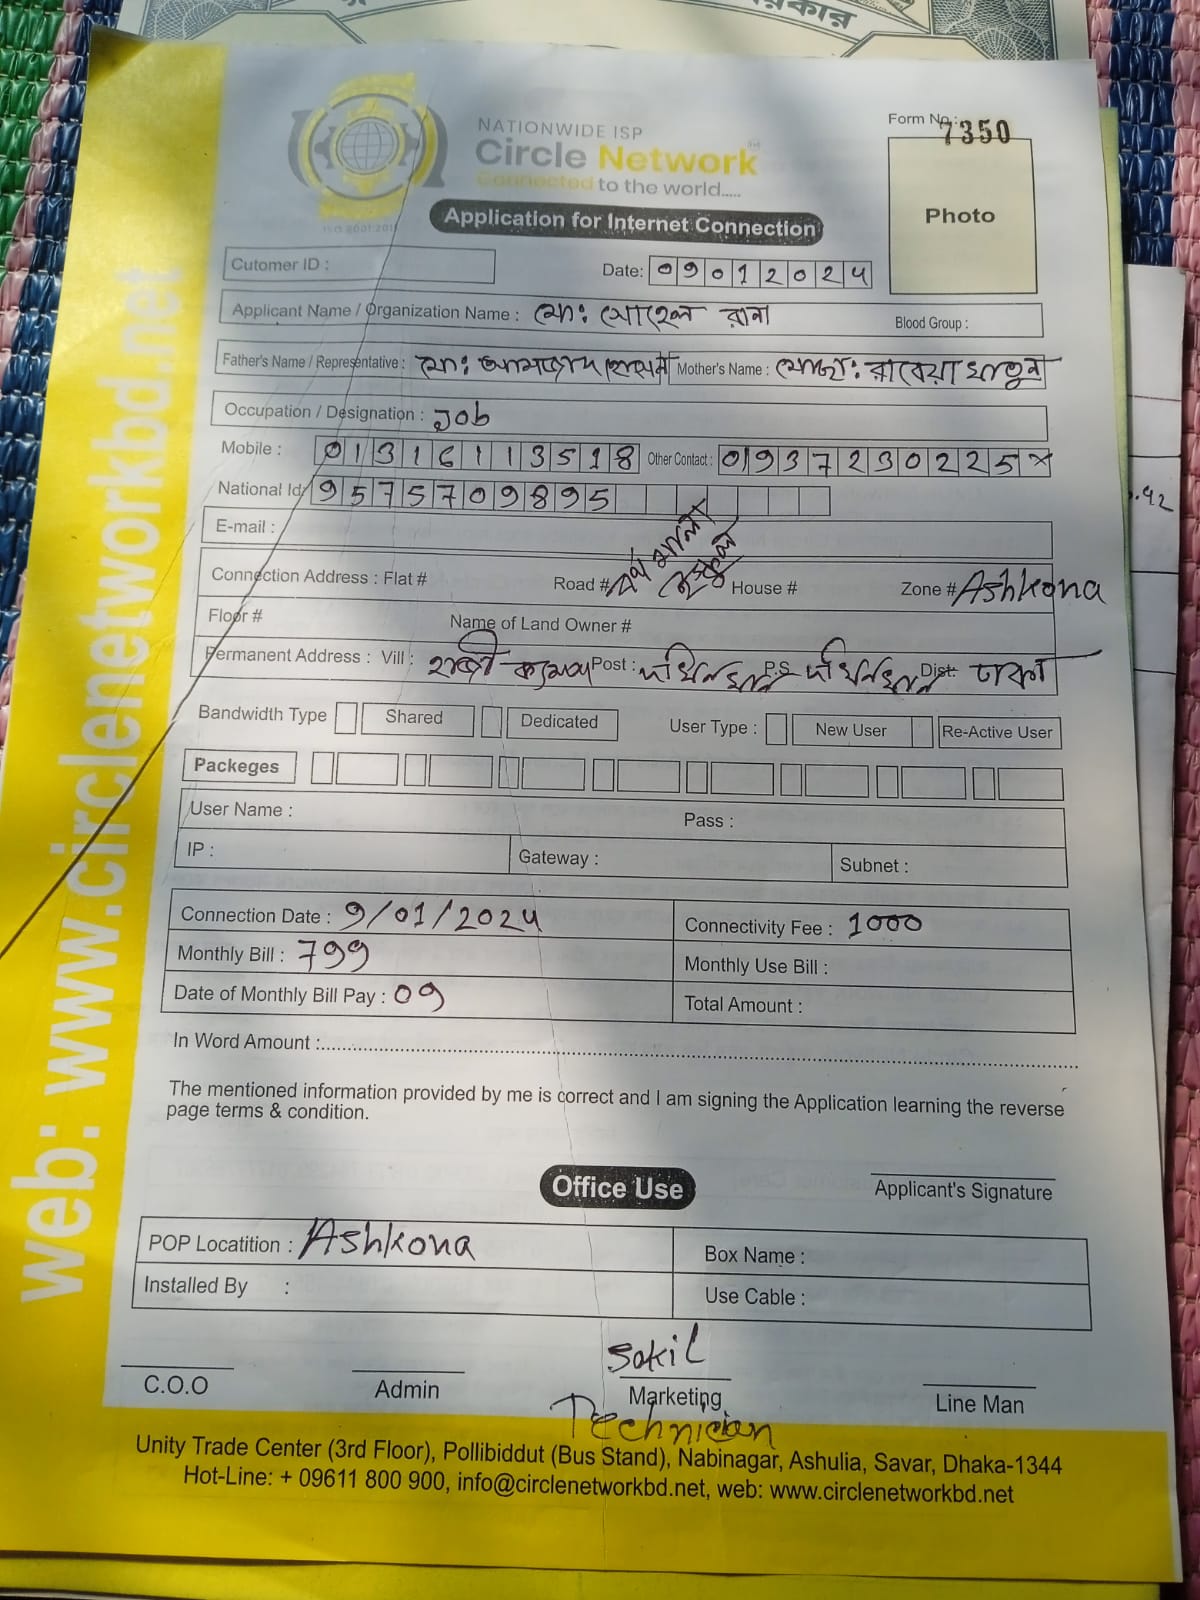 রকার
NATIONWIDE ISP
Circle Network
Connected to the world.....
ISO 9001:2015
Form No.: 7350
Photo
Application for Internet Connection
Cutomer ID :
Date: 09012024
Applicant Name / Organization Name : মো: সোহেল রানা
Blood Group :
Father's Name / Representative : মো: আমজাদ হোসেন Mother's Name : মোছা: রাবেয়া খাতুন
Occupation / Designation : Job
Mobile : 01316113518 Other Contact : 01937230225x
National Id: 9575709895
E-mail :
Connection Address : Flat # Road # House # Zone # Ashkona
Floor # Name of Land Owner #
Permanent Address : Vill : হাজী ক্যাম্প Post : দক্ষিনখান P.S দক্ষিনখান Dist: ঢাকা
Bandwidth Type Shared Dedicated User Type : New User Re-Active User
Packeges
User Name : Pass :
IP : Gateway : Subnet :
Connection Date : 9/01/2024 Connectivity Fee : 1000
Monthly Bill : 799 Monthly Use Bill :
Date of Monthly Bill Pay : 09 Total Amount :
In Word Amount :
The mentioned information provided by me is correct and I am signing the Application learning the reverse
page terms & condition.
Applicant's Signature
Office Use
POP Locatition : Ashkona Box Name :
Installed By : Use Cable :
Sakil
C.O.O Admin Marketing Line Man
Technician
Unity Trade Center (3rd Floor), Pollibiddut (Bus Stand), Nabinagar, Ashulia, Savar, Dhaka-1344
Hot-Line: + 09611 800 900, info@circlenetworkbd.net, web: www.circlenetworkbd.net
web: www.circlenetworkbd.net